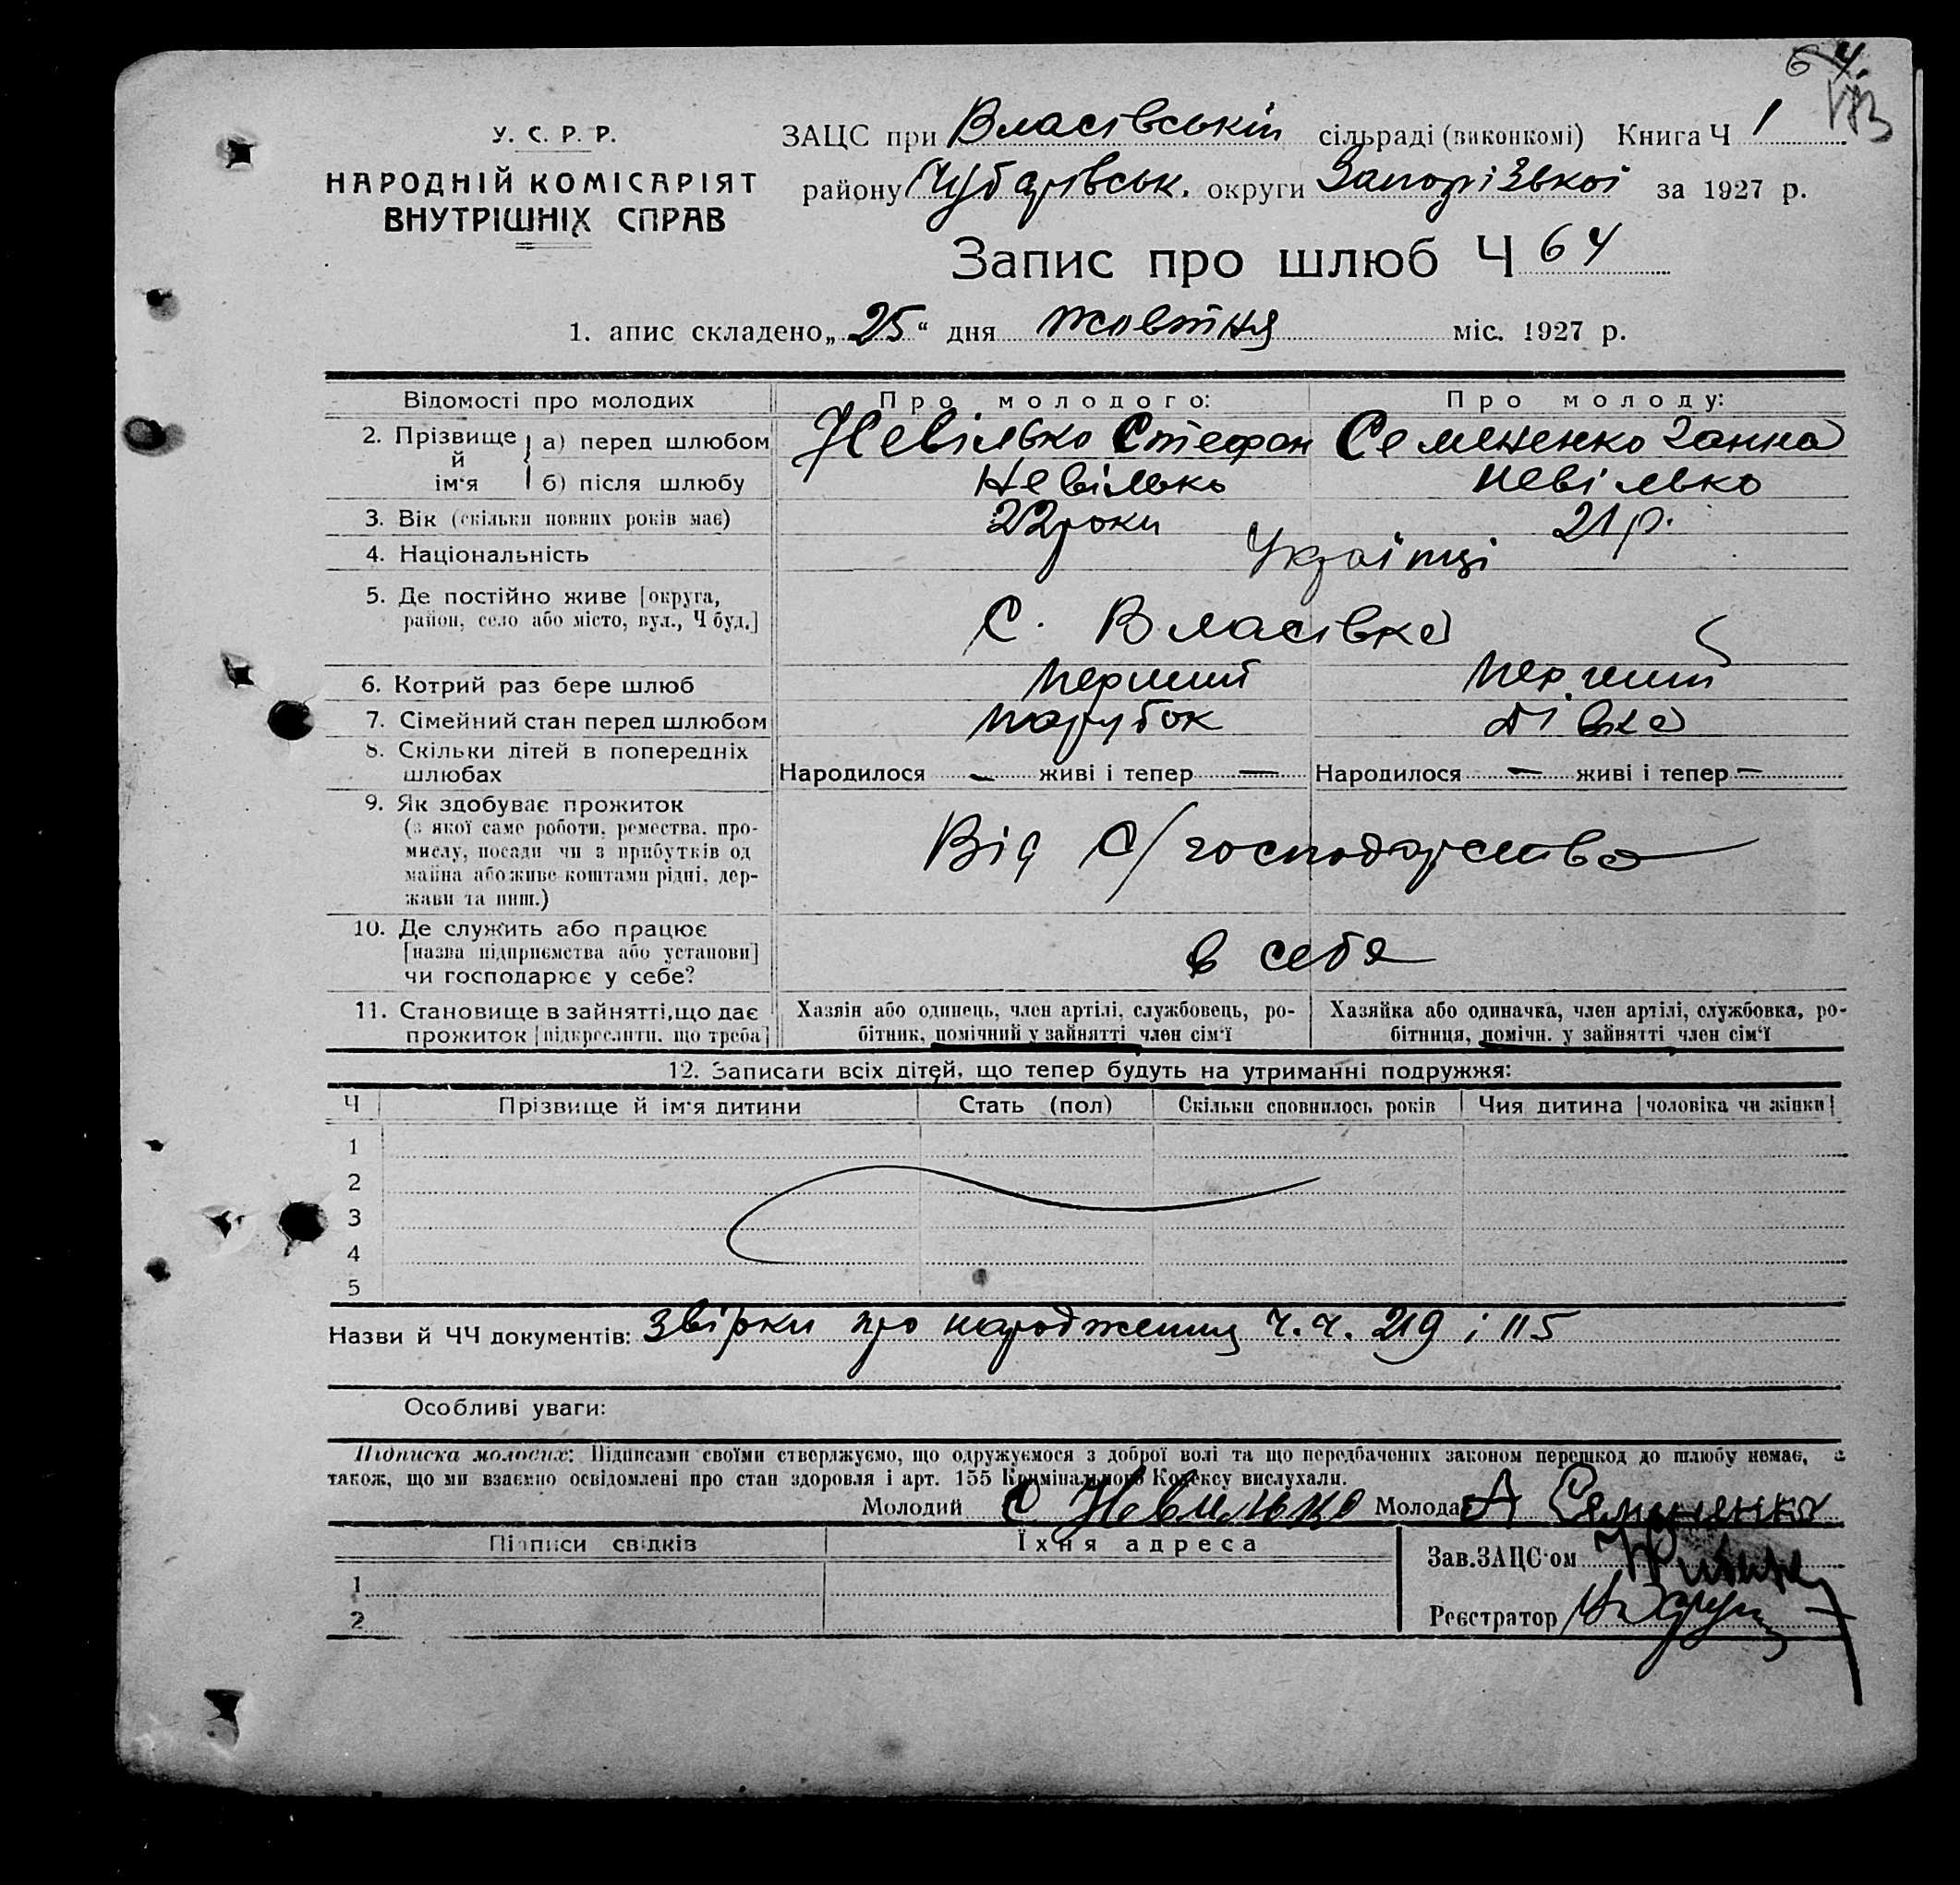 64.
У. С. Р. Р.
НАРОДНІЙ КОМІСАРІЯТ
ВНУТРІШНІХ СПРАВ
ЗАЦС при Власівській сільраді (виконкомі) Книга Ч 1
району Чубарівськ. округи Запорізької за 1927 р.
Запис про шлюб Ч 64
1. апис складено „25“ дня жовтня міс. 1927 р.
Відомості про молодих Про молодого: Про молоду:
2. Прізвище й ім‘я а) перед шлюбом Невілько Стефан Семененко Ганна
б) після шлюбу Невілько Невілько
3. Вік (скільки повних років має) 22 роки 21 р.
4. Національність Українці
5. Де постійно живе [округа,
район, село або місто, вул., Ч буд.] С. Власівка
6. Котрий раз бере шлюб перший перший
7. Сімейний стан перед шлюбом парубок дівка
8. Скільки дітей в попередніх
шлюбах Народилося — живі і тепер — Народилося — живі і тепер —
9. Як здобуває прожиток
(з якої саме роботи, ремества, про-
мислу, посади чи з прибутків од
майна або живе коштами рідні, дер-
жави та инш.) Від С/господарства
10. Де служить або працює
[назва підприємства або установи]
чи господарює у себе? в себя
11. Становище в зайнятті, що дає
прожиток [підкреслити, що треба]
Хазяін або одинець, член артілі, службовець, ро-
бітник, помічний у зайнятті член сім‘ї
Хазяйка або одиначка, член артілі, службовка, ро-
бітниця, помічн. у зайнятті член сім‘ї
12. Записати всіх дітей, що тепер будуть на утриманні подружжя:
Ч Прізвище й ім‘я дитини Стать (пол) Скільки сповнилось років Чия дитина [чоловіка чи жінки]
1
2
3
4
5
Назви й ЧЧ документів: звірки про народження ч.ч. 219 і 115
Особливі уваги:
Підписка молодих: Підписами своїми стверджуємо, що одружуємося з доброї волі та що передбачених законом перешкод до шлюбу немає, а
також, що ми взаємно освідомлені про стан здоровля і арт. 155 Кримінального Кодексу вислухали.
Молодий С Невилько Молода А Семененко
Підписи свідків Їхня адреса
Зав. ЗАЦС‘ом
1
Реєстратор
2